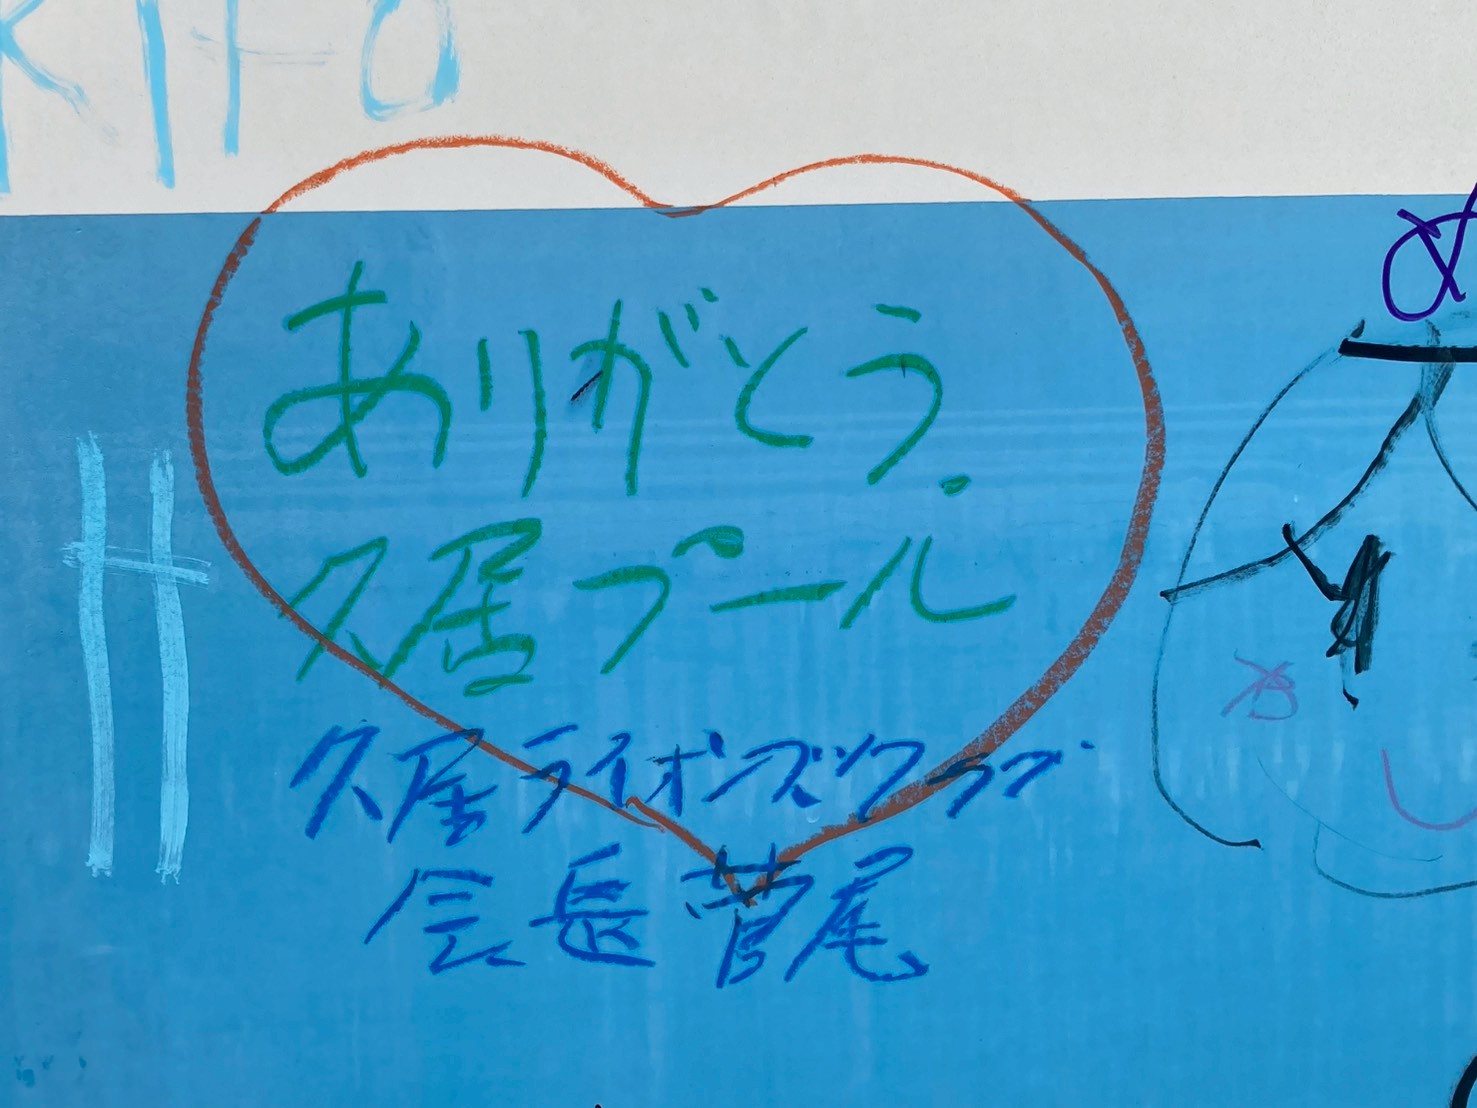 KITO
ありがとう.
久居プール
久居ライオンズクラブ
会長 菅尾